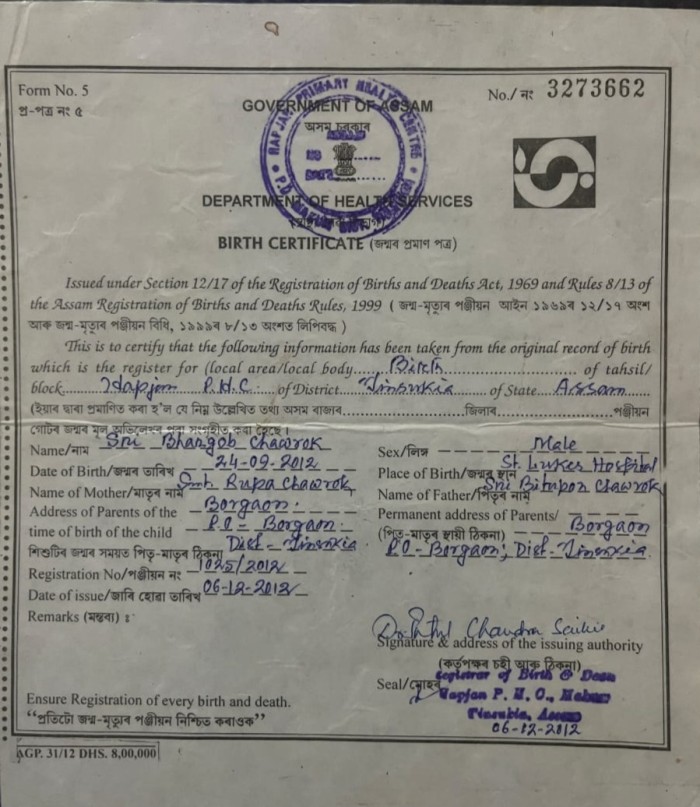 Form No. 5
প্ৰ-পত্ৰ নং ৫
No./ নং 3273662
HAPJAN PRIMARY HEALTH CENTRE
GOVERNMENT OF ASSAM
অসম চৰকাৰ
DEPARTMENT OF HEALTH SERVICES
BIRTH CERTIFICATE (জন্মৰ প্ৰমাণ পত্ৰ)
Issued under Section 12/17 of the Registration of Births and Deaths Act, 1969 and Rules 8/13 of
the Assam Registration of Births and Deaths Rules, 1999 ( জন্ম-মৃত্যুৰ পঞ্জীয়ন আইন ১৯৬৯ৰ ১২/১৭ অংশ
আৰু জন্ম-মৃত্যুৰ পঞ্জীয়ন বিধি, ১৯৯৯ৰ ৮/১৩ অংশত লিপিবদ্ধ )
This is to certify that the following information has been taken from the original record of birth
which is the register for (local area/local body....Birth.... of tahsil/
block....Hapjan P.H.C. of District....Tinsukia....of State....Assam....
(ইয়াৰ দ্বাৰা প্ৰমাণিত কৰা হ'ল যে নিম্ন উল্লেখিত তথ্য অসম ৰাজ্যৰ....জিলাৰ....পঞ্জীয়ন
গোটৰ জন্মৰ মূল অভিলেখৰ পৰা সংগ্ৰহীত কৰা হৈছে।
Name/নাম Sri Bhargob Chawrok
Sex/লিঙ্গ Male
Date of Birth/জন্মৰ তাৰিখ 24-09-2012
Place of Birth/জন্মৰ স্থান St. Lukes Hospital
Name of Mother/মাতৃৰ নাম Smt. Rupa Chawrok
Name of Father/পিতৃৰ নাম Sri Bitupon Chawrok
Address of Parents of the Borgaon.
time of birth of the child P.O - Borgaon.
শিশুটিৰ জন্মৰ সময়ত পিতৃ-মাতৃৰ ঠিকনা Dist - Tinsukia
Permanent address of Parents/
(পিতৃ-মাতৃৰ স্থায়ী ঠিকনা) Borgaon
P.O - Borgaon, Dist - Tinsukia.
Registration No/পঞ্জীয়ন নং 1025/2012
Date of issue/জাৰি হোৱা তাৰিখ 06-12-2012
Remarks (মন্তব্য) :
Chandra Saikia
Signature & address of the issuing authority
(কৰ্তৃপক্ষৰ চহী আৰু ঠিকনা)
Seal/মোহৰ
Registrar of Birth & Death
Hapjan P. H. C., Makum
Tinsukia, Assam
06-12-2012
Ensure Registration of every birth and death.
“প্ৰতিটো জন্ম-মৃত্যুৰ পঞ্জীয়ন নিশ্চিত কৰাওক”
AGP. 31/12 DHS. 8,00,000